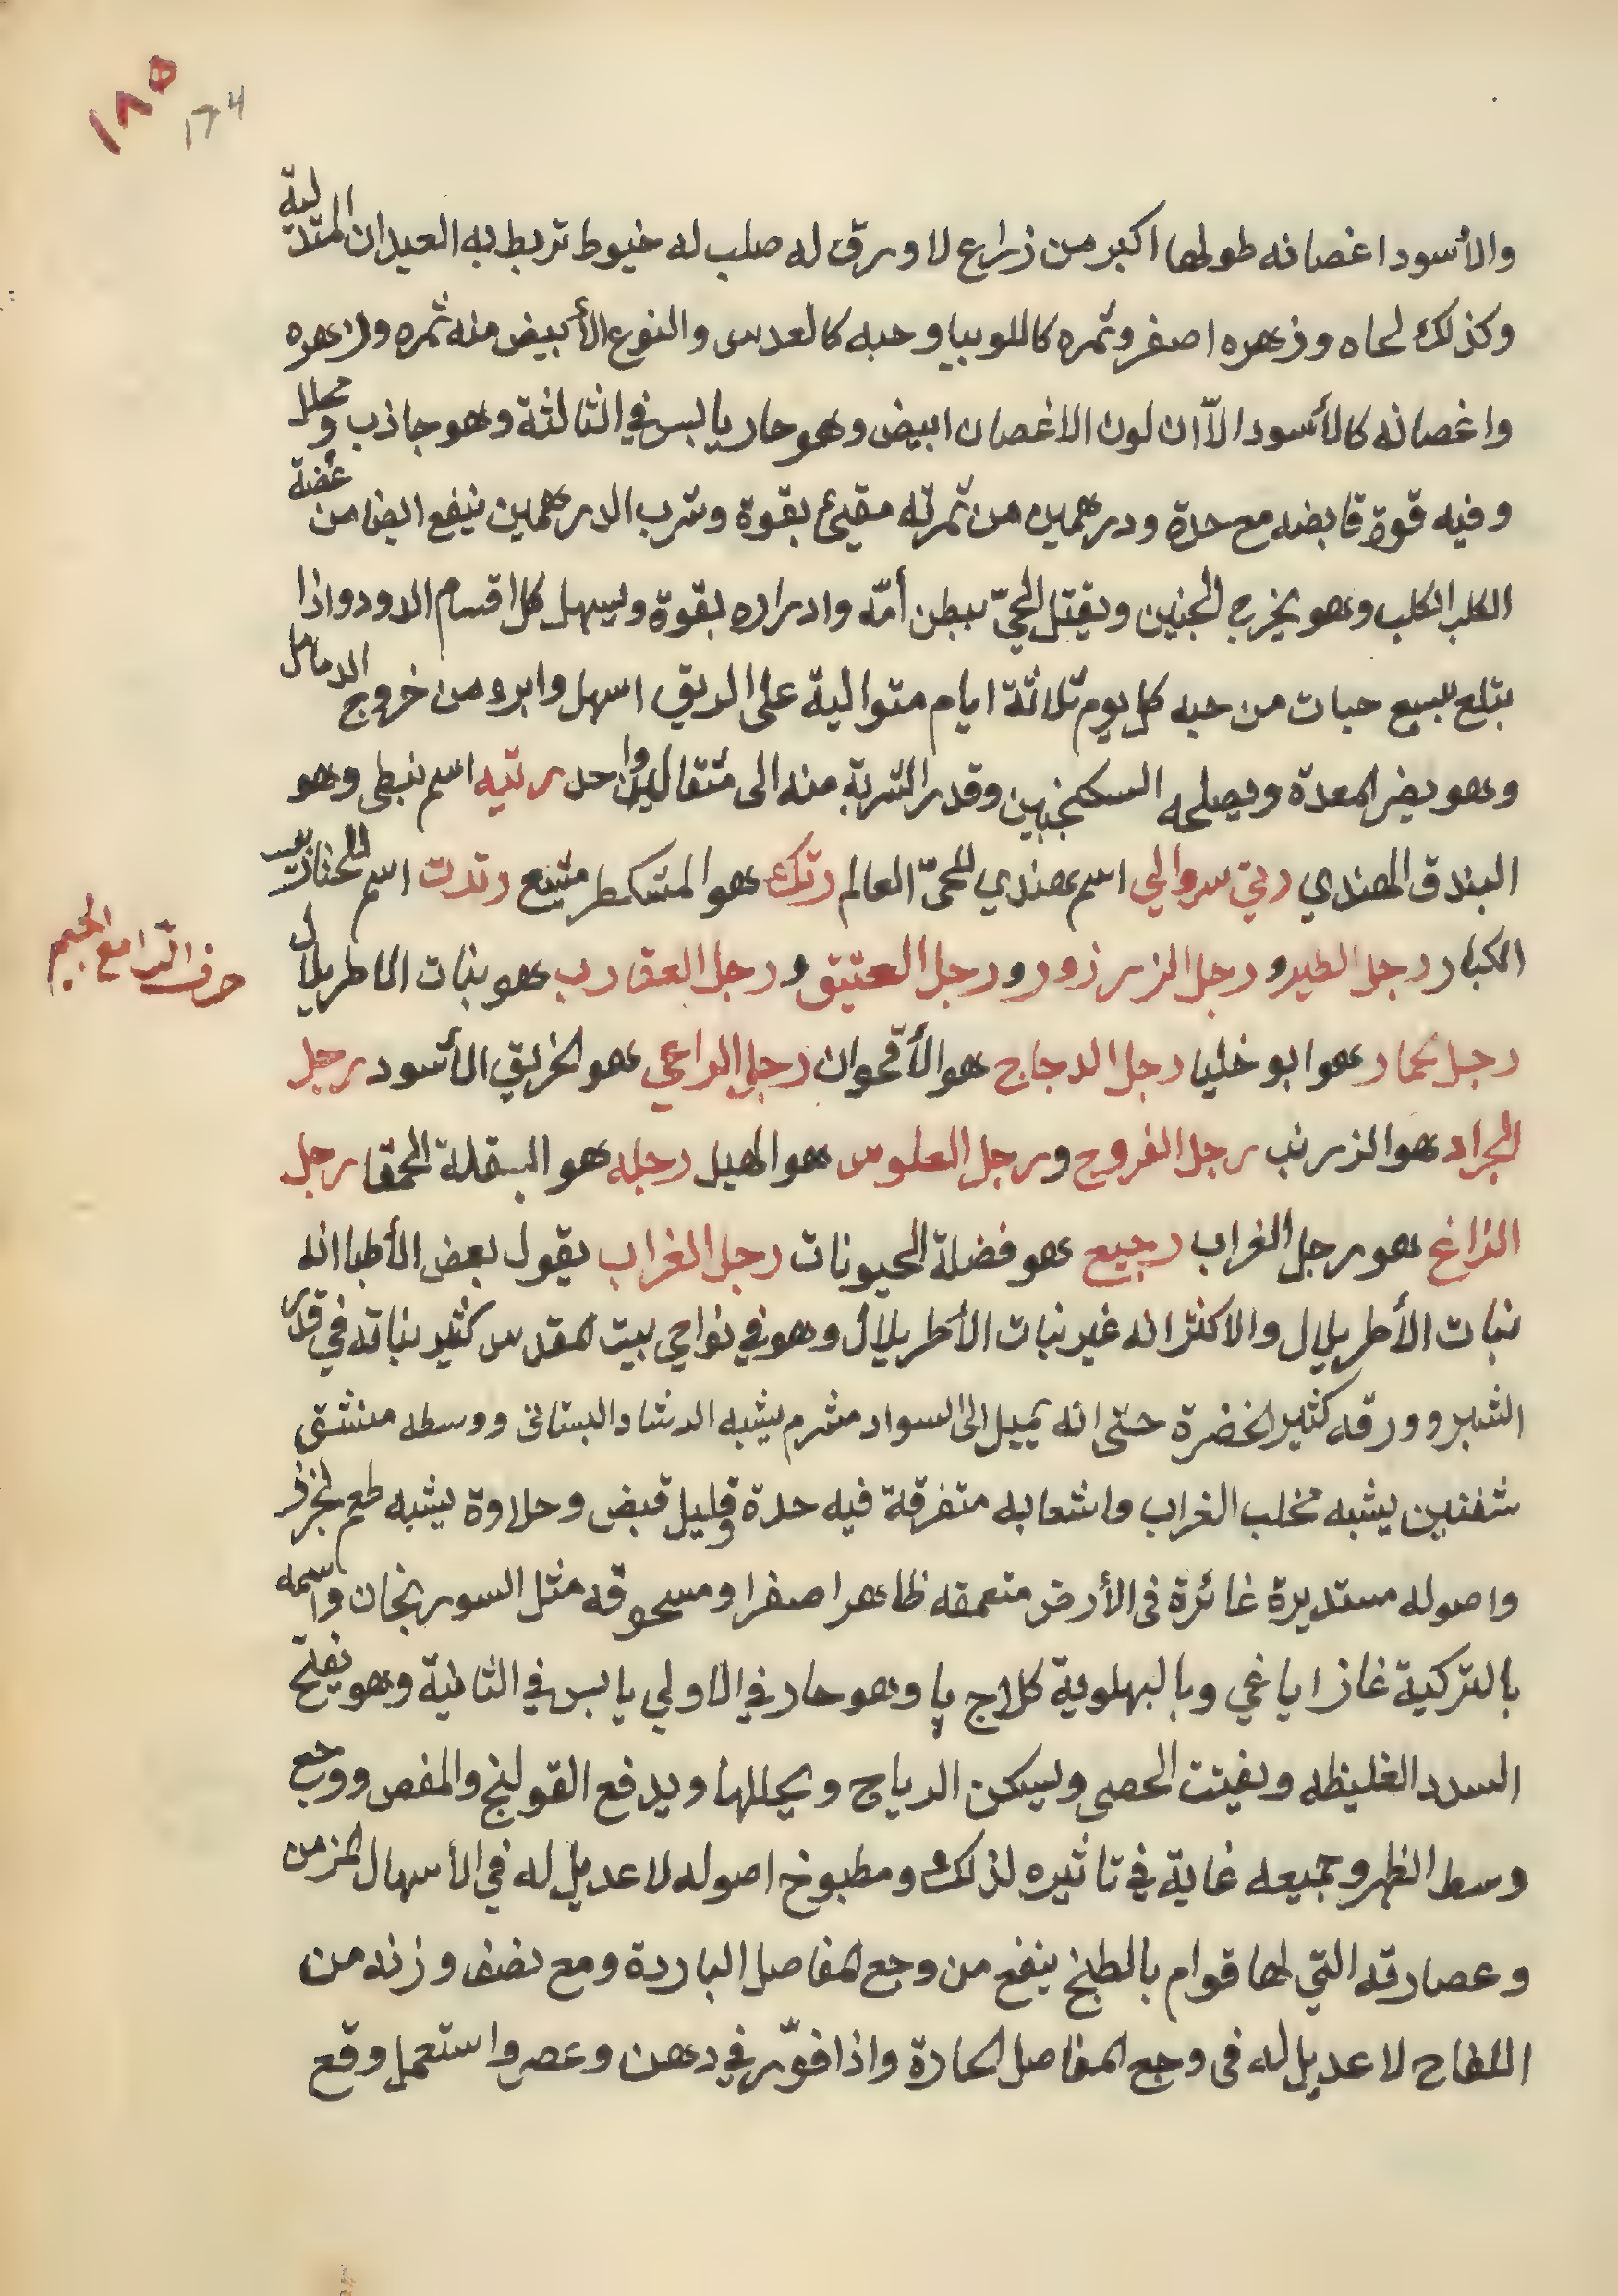 ١٨٥
١٧٤
والأسود اغصانه طولها اكبر من زراع لا ورق له صلب له خيوط تربط به العيدان المتدلية
وكذلك لحاه وزهره اصفر وثمره كاللوبيا وحبه كالعدس والنوع الأبيض منه ثمره وزهره
واغصانه كالأسود الاّ ان لون الاغصان ابيض وهو حار يابس في الثالثة وهو جاذب ومحلل
وفيه قوة قابضه مع حدة ودرهمين من ثمرته مقيئ بقوة وشرب الدرهمين ينفع ايضا من عضة
الكلب الكلب وهو يخرج الجنين ويقتل الحيّ ببطن أمّه وادراره بقوة ويسهل كل اقسام الدود واذا
بتلع سبع حبات من حبه كل يوم ثلاثة ايام متوالية على الريق اسهل وابرء من خروج الدمامل
وهو يضر المعدة ويصلحه السكنجبين وقدر الشربة منه الى مثقال واحد رتيه اسم نبطى وهو
البندق الهندي رتى سروالي اسم هندي للحىّ العالم رتك هو المشكطرمشيع رتدت اسم
الكبار رجل الطير ورجل الزرزور ورجل العتيق ورجل العقارب هو بنات الاطريلال
حرف الرا مع الجيم
رجل حمار هو ابو خليا رجل الدجاج هو الأقحوان رجل الراعي هو الخربق الأسود رجل
الجراد هو الزرنب رجل الفروج ورجل العلوس هو الهيل رجله هو البقلة الحمقا رجل
الزاغ هو رجل الغراب رجيع هو فضلة الحيونات رجل الغراب يقول بعض الأطبا انه
نبات الأطريلال والاكثر انه غير نبات الأطريلال وهو في نواحي بيت المقدس كثير بناته في قدر
الشبر وورقه كثير الخضرة حتى انه يميل الى السواد مشرم يشبه الرشاد البستانى ووسطه منشق
شفتين يشبه مخلب الغراب واشعابه متفرقة فيه حدة وقليل قبض وحلاوة يشبه طعم الجزر
واصوله مستديرة غائرة فى الأرض متعمقه ظاهر اصفرا ومسحوقه مثل السورنجان واسمه
بالتركية غاز اياغي وبالبهلوية كلاج پا وهو حار في الاولي يابس في الثانية وهو يفتح
السدد الغليظه ويفيتت الحصى ويسكن الرياح ويحللها ويدفع القولنج والمغص ووجع
وسط الظهر وجميعه غاية في تاثيره لذلك ومطبوخ اصوله لا عديل له في الأسهال المزمن
وعصارقه التي لها قوام بالطبخ ينفع من وجع المفاصل الباردة ومع نصف وزنه من
اللفاح لا عديل له فى وجع المفاصل الحارة واذا فوّر في دهن وعصر واستعمل وقع